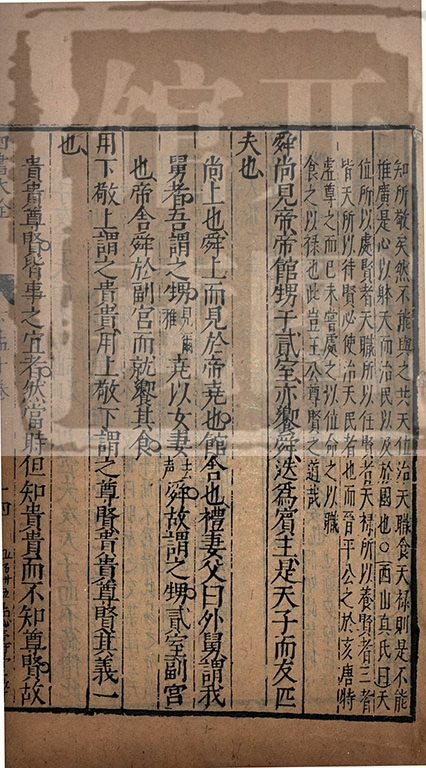 知所敬矣然不能與之共天位治天職食天禄則是不能
推廣是心以躰天而治民以及於國也○西山真氏曰天
位所以處賢者天職所以任賢者天禄所以養賢者三者
皆天所以待賢必使治天民者也而晉平公之於亥唐特
虚尊之而已未嘗處之以位命之以職
食之以禄也此豈王公尊賢之道哉
舜尚見帝帝館甥于貳室亦饗舜迭爲賓主是天子而友匹
夫也
尚上也舜上而見於帝堯也館舍也禮妻父曰外舅謂我
舅者吾謂之甥見爾雅堯以女妻去聲舜故謂之甥貳室副宮
也帝舎舜於副宮而就饗其食
用下敬上謂之貴貴用上敬下謂之尊賢貴貴尊賢其義一
也
貴貴尊賢皆事之宜者然當時但知貴貴而不知尊賢故